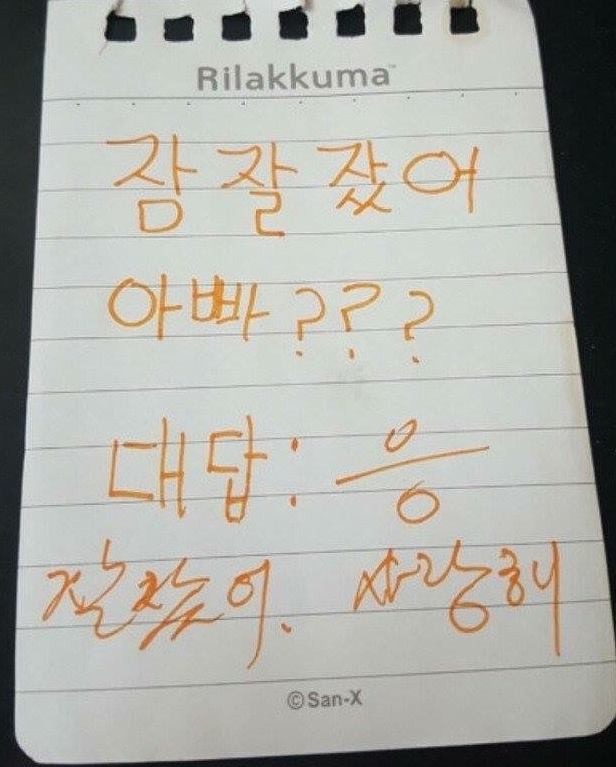 Rilakkuma™
잠 잘 잤어
아빠???
대답: 응
잘잤어. 사랑해
©San-X